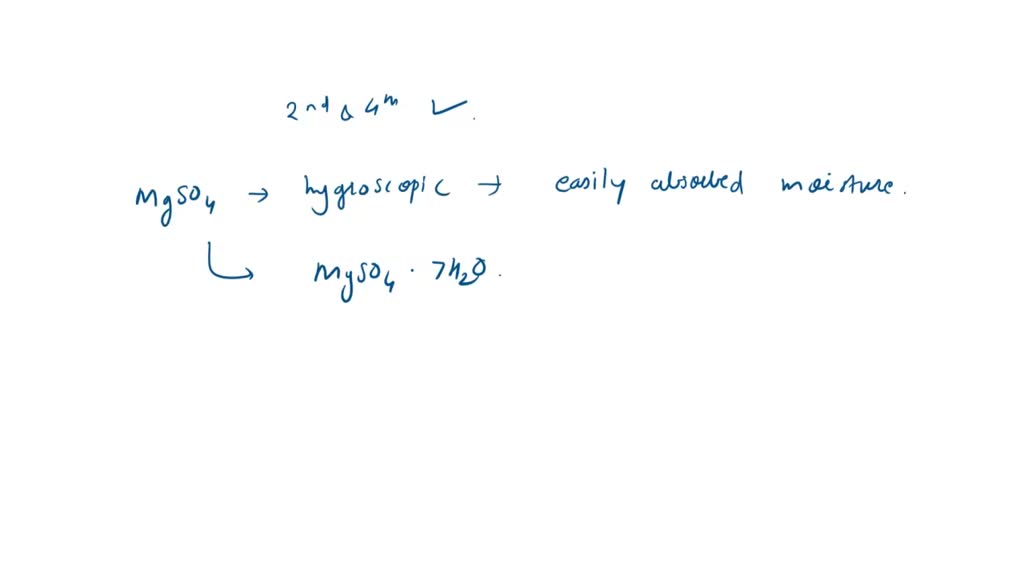 2nd & 4th ✓.
MgSO4 → hygroscopic → easily absorbed moisture.
↳ MgSO4 · 7H2O.